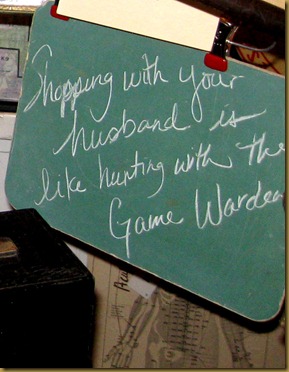 Shopping with your
husband is
like hunting with the
Game Warden